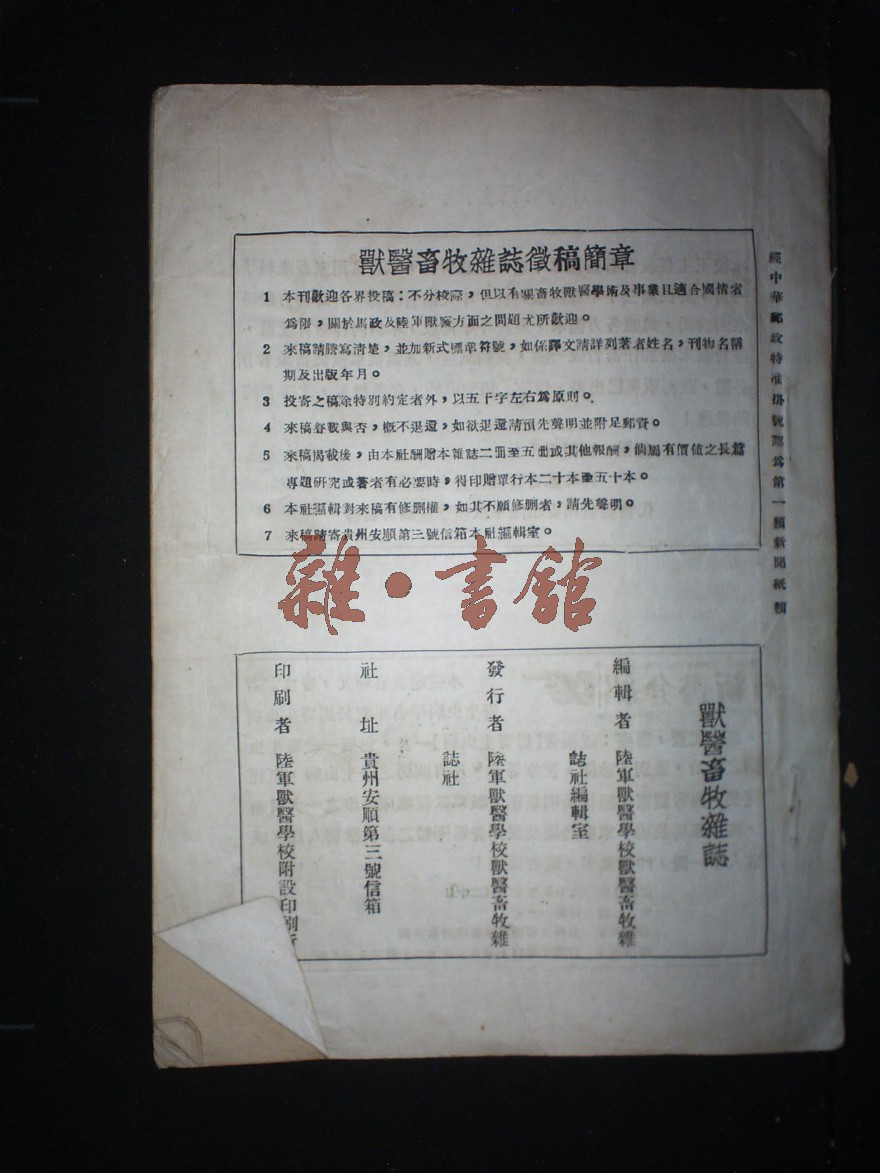 經中華郵政特准掛號認為第一類新聞紙類
獸醫畜牧雜誌徵稿簡章
1 本刊歡迎各界投稿：不分校際，但以有關畜牧獸醫學術及事業且適合國情者
為限，關於馬政及陸軍獸醫方面之問題尤所歡迎。
2 來稿請謄寫清楚，並加新式標準符號，如係譯文請詳列著者姓名，刊物名稱
期及出版年月。
3 投寄之稿除特別約定者外，以五千字左右為原則。
4 來稿登載與否，概不退還，如欲退還請預先聲明並附足郵資。
5 來稿揭載後，由本社酬贈本雜誌二冊至五冊或其他報酬，倘屬有價值之長篇
專題研究或著者有必要時，得印贈單行本二十本至五十本。
6 本社編輯對來稿有修刪權，如其不願修刪者，請先聲明。
7 來稿請寄貴州安順第三號信箱本社編輯室。
雜·書館
獸醫畜牧雜誌
編輯者 陸軍獸醫學校獸醫畜牧雜
誌社編輯室
發行者 陸軍獸醫學校獸醫畜牧雜
誌社
社址 貴州安順第三號信箱
印刷者 陸軍獸醫學校附設印刷所